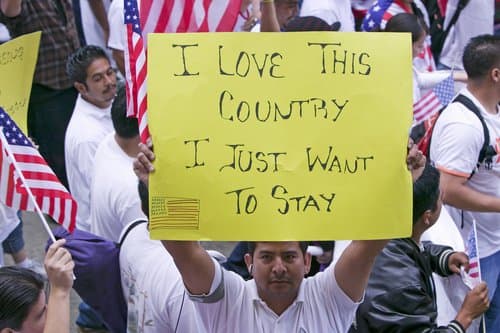 I Love This
Country
I Just Want
To Stay